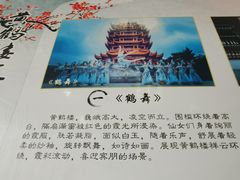 《鹤舞》
一 《鹤舞》
黄鹤楼,巍峨高大,凌空而立。围槛环绕着高
台,隔扇藻窗被红色的霞光所浸染。仙女们身着绚丽
的霞服,肤若凝脂,面似白玉,随着乐声,舒展着轻
柔的纱袖,旋转飘舞,如诗如画。展现黄鹤楼祥云环
绕,霞彩流动,喜迎宾朋的场景。